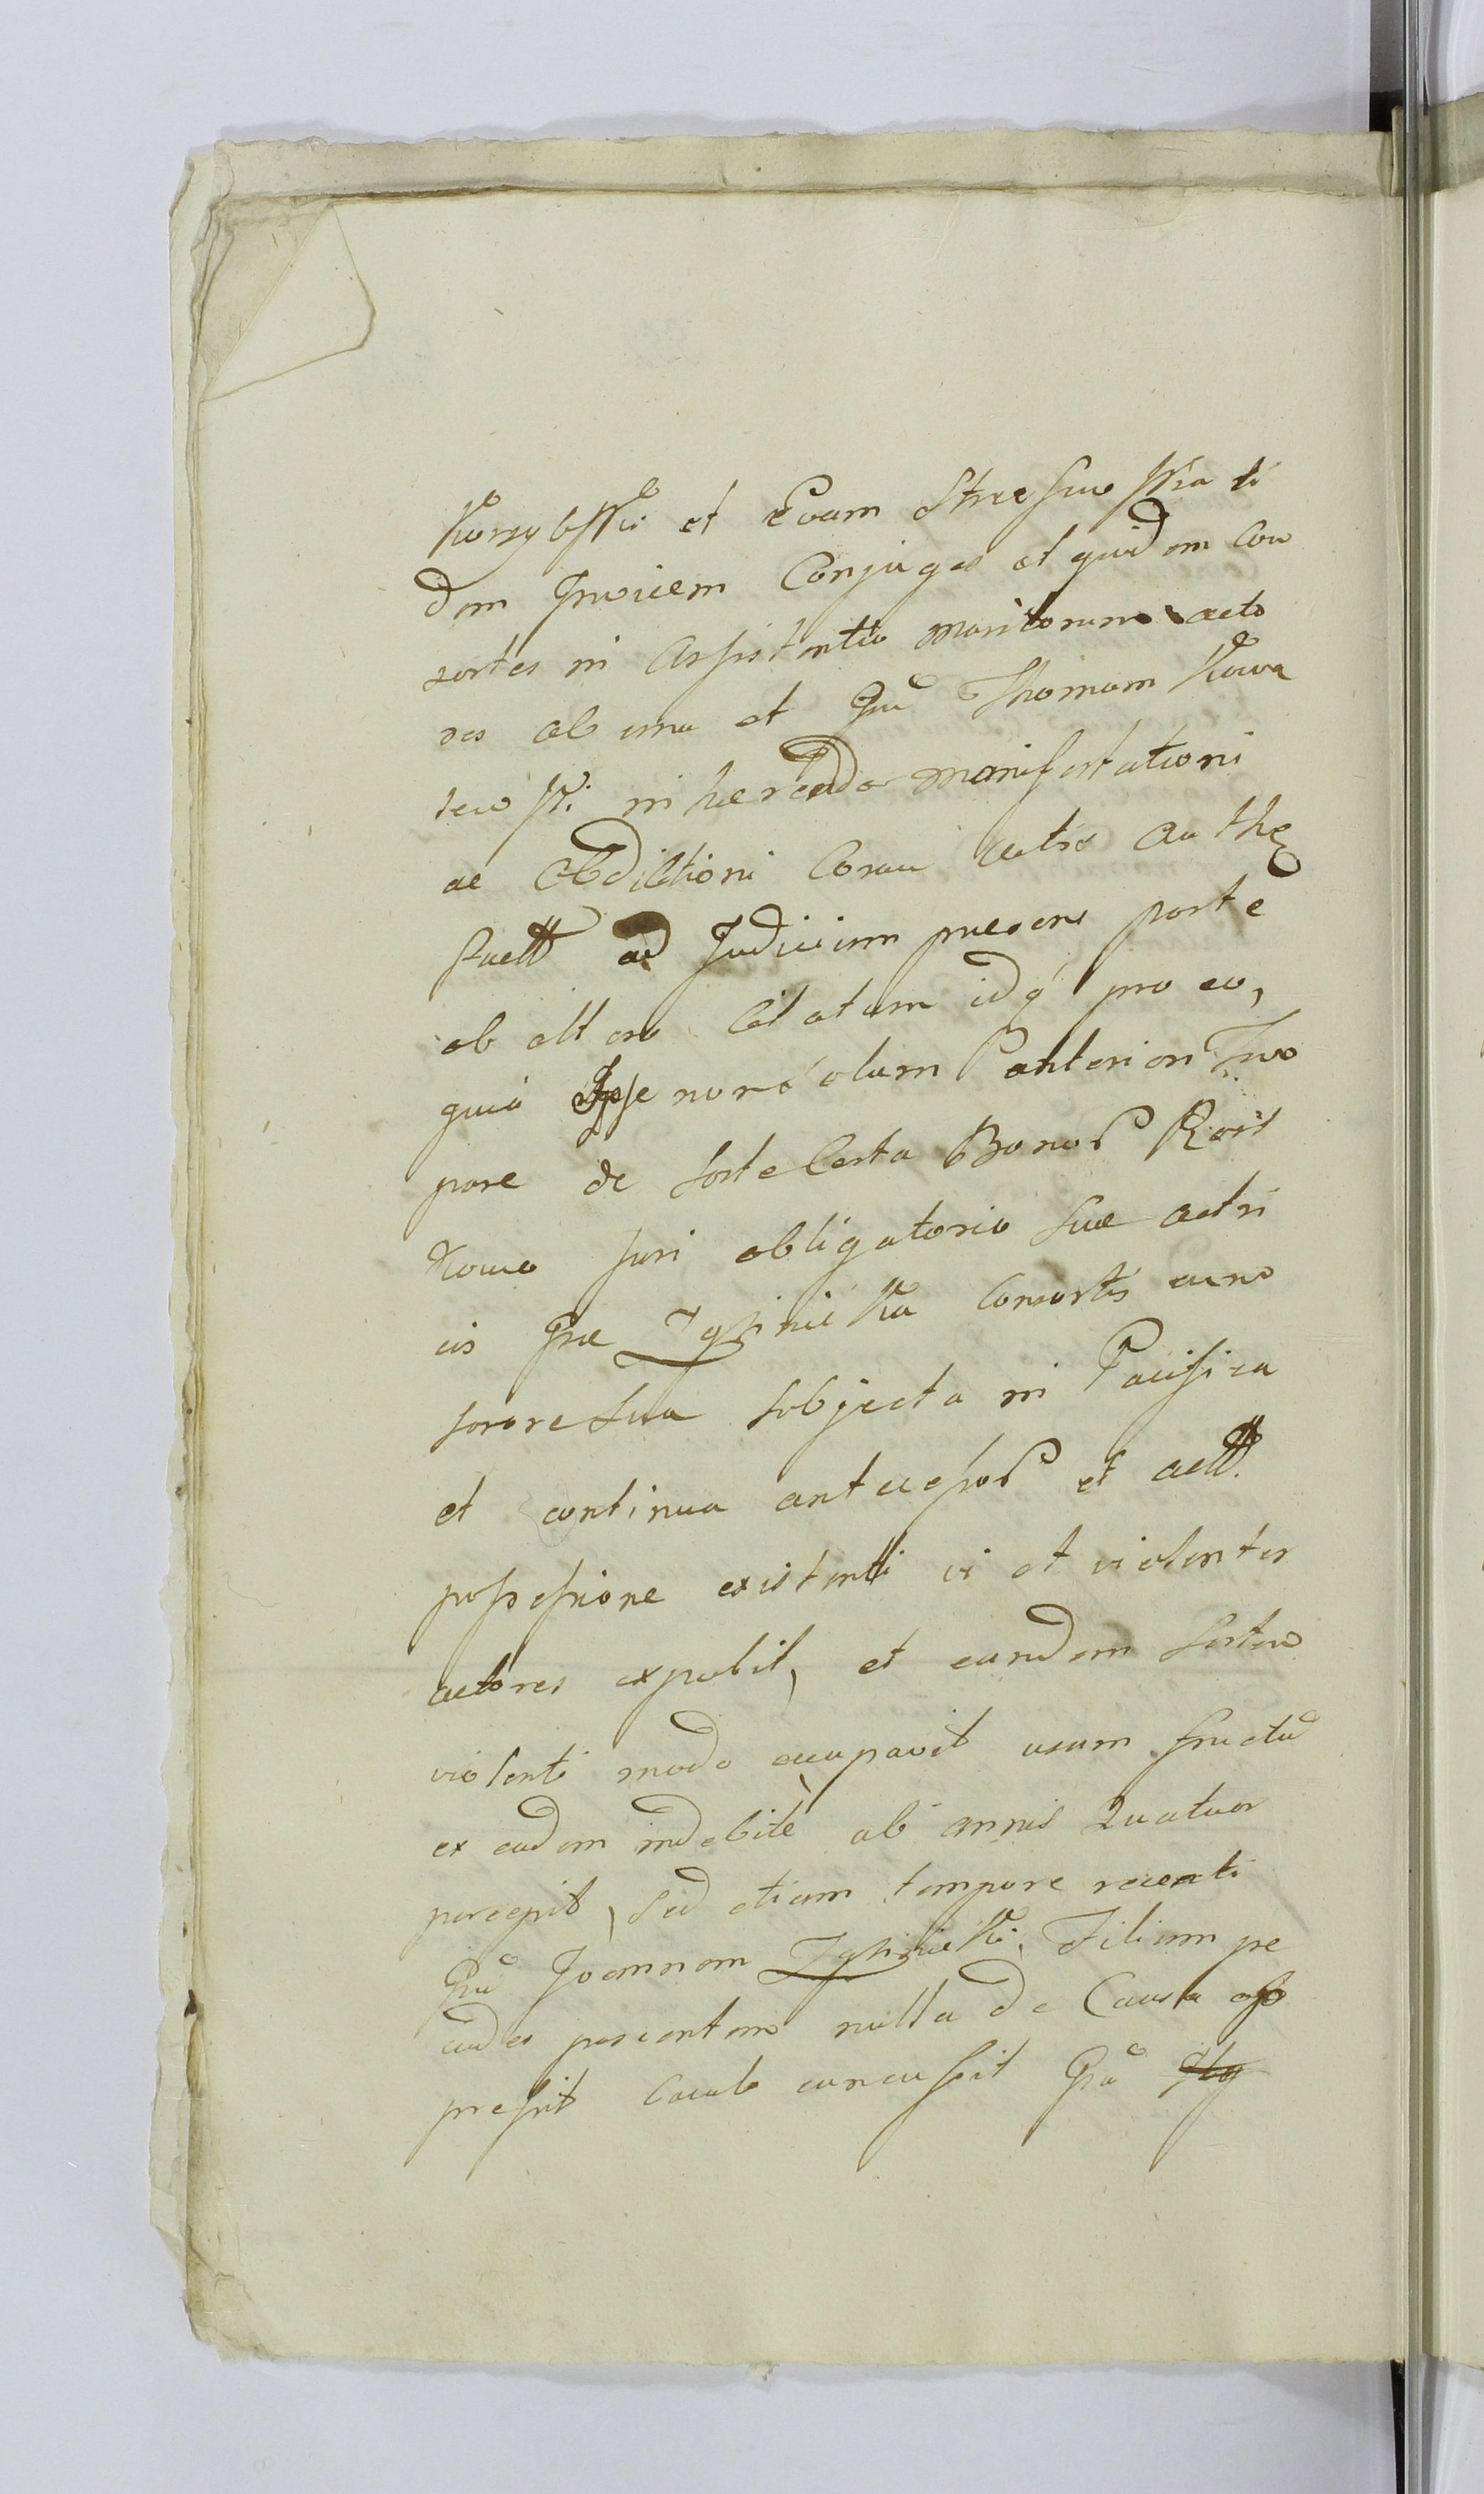 et Evam
dem Invicem Conjuges et quidem Con
sortes in Assistentia maritorum acto
res ab una et Gnū Thomam Kowa
lewski inhaerendo manifestationi
ac Obdictioni Coram actis Authen
fact ad Judicium praesens parte
ab altera Citatum idq pro eo,
quia Ipse non solum anteriori Tem
pore de sorte Certa Bonor
kowo Juri obligatorio suae actri
cis Gnae Consortis cum
sorore sua subjecta in Pacifica
et continua antecessor et act.
possessione existenti vi et violenter
actores expulit, et eandem sortem
violenti modo occupavit usum fructū
ex eadem indebitè ab annis Quatuor
percepit, sed etiam tempore recenti
Gnū Joannem Filium pe
cudes pascentem nulla de Causa op
pressit concussit Gnū